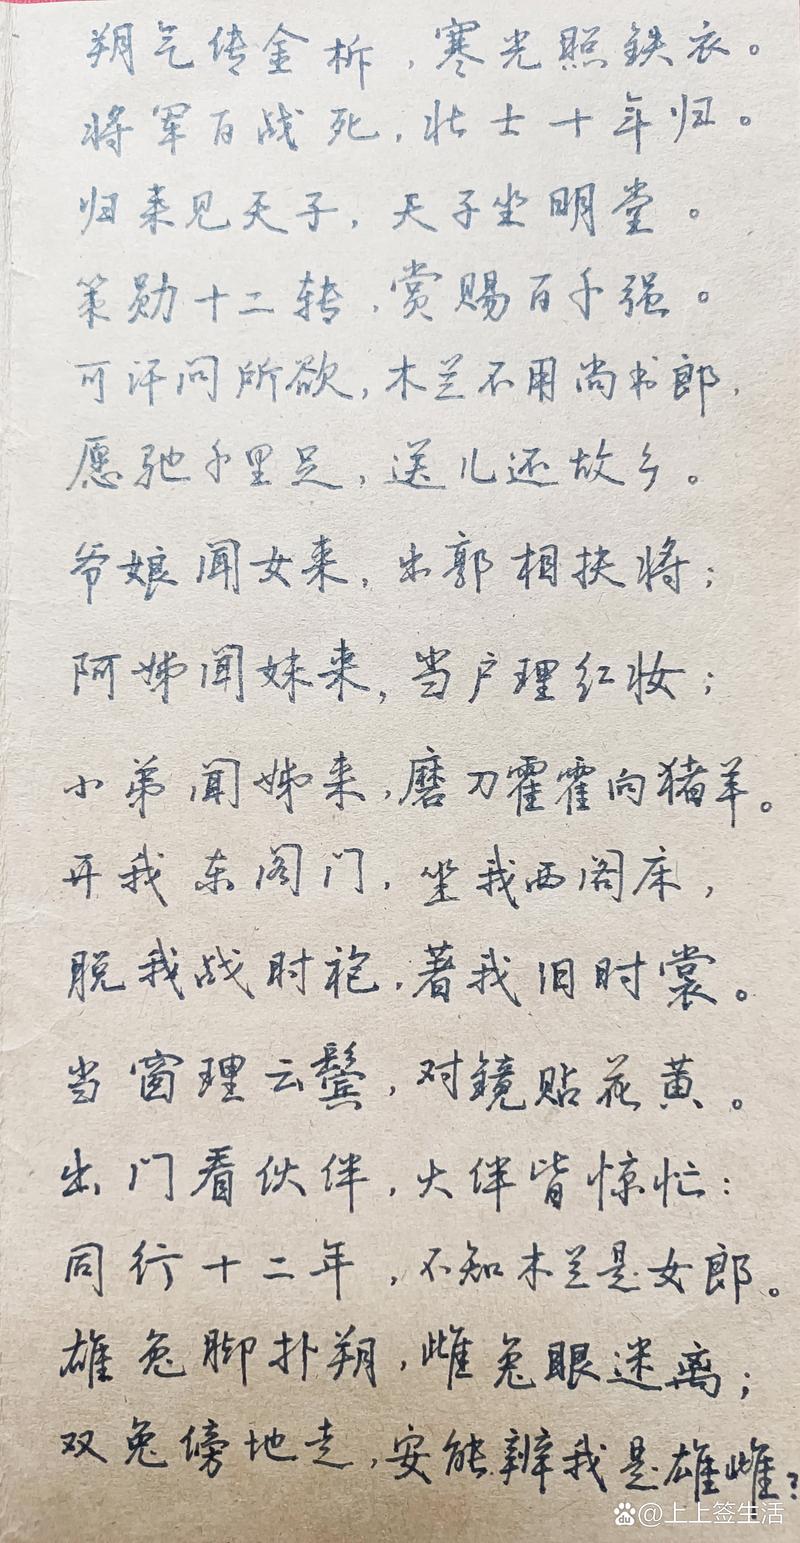 朔气传金柝，寒光照鉄衣。
将军百战死，壮士十年归。
归来见天子，天子坐明堂。
策勋十二转，赏赐百千强。
可汗问所欲，木兰不用尚书郎，
愿驰千里足，送儿还故乡。
爷娘闻女来，出郭相扶将；
阿姊闻妹来，当户理红妆；
小弟闻姊来，磨刀霍霍向猪羊。
开我东阁门，坐我西阁床，
脱我战时袍，著我旧时裳。
当窗理云鬓，对镜贴花黄。
出门看伙伴，火伴皆惊忙：
同行十二年，不知木兰是女郎。
雄兔脚扑朔，雌兔眼迷离；
双兔傍地走，安能辨我是雄雌？
Bai du @上上签生活